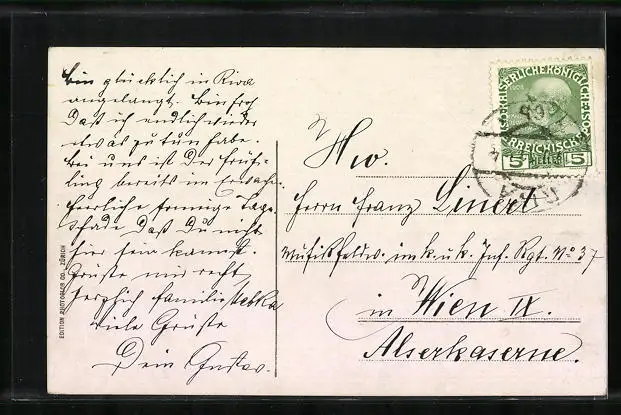 Bin glücklich in Riva
angelangt. Bin froh
daß ich endlich wieder
etwas zu tun habe.
Bei uns ist der Früh-
ling bereits im Erwachen.
Herrliche sonnige Tage.
Schade daß Du nicht
hier sein kannst.
Grüße mir recht
herzlich Familie
Viele Grüße
Dein Gustav.
EDITION PHOTOGLOB CO. ZÜRICH
KAISERLICHE KÖNIGLICHE ÖSTERREICHISCHE
5 HELLER 5
RIVA
Herrn Franz Linert
Musikfeldw. im k. u. k. Inf. Rgt. No 37
in Wien IX.
Alserkaserne.